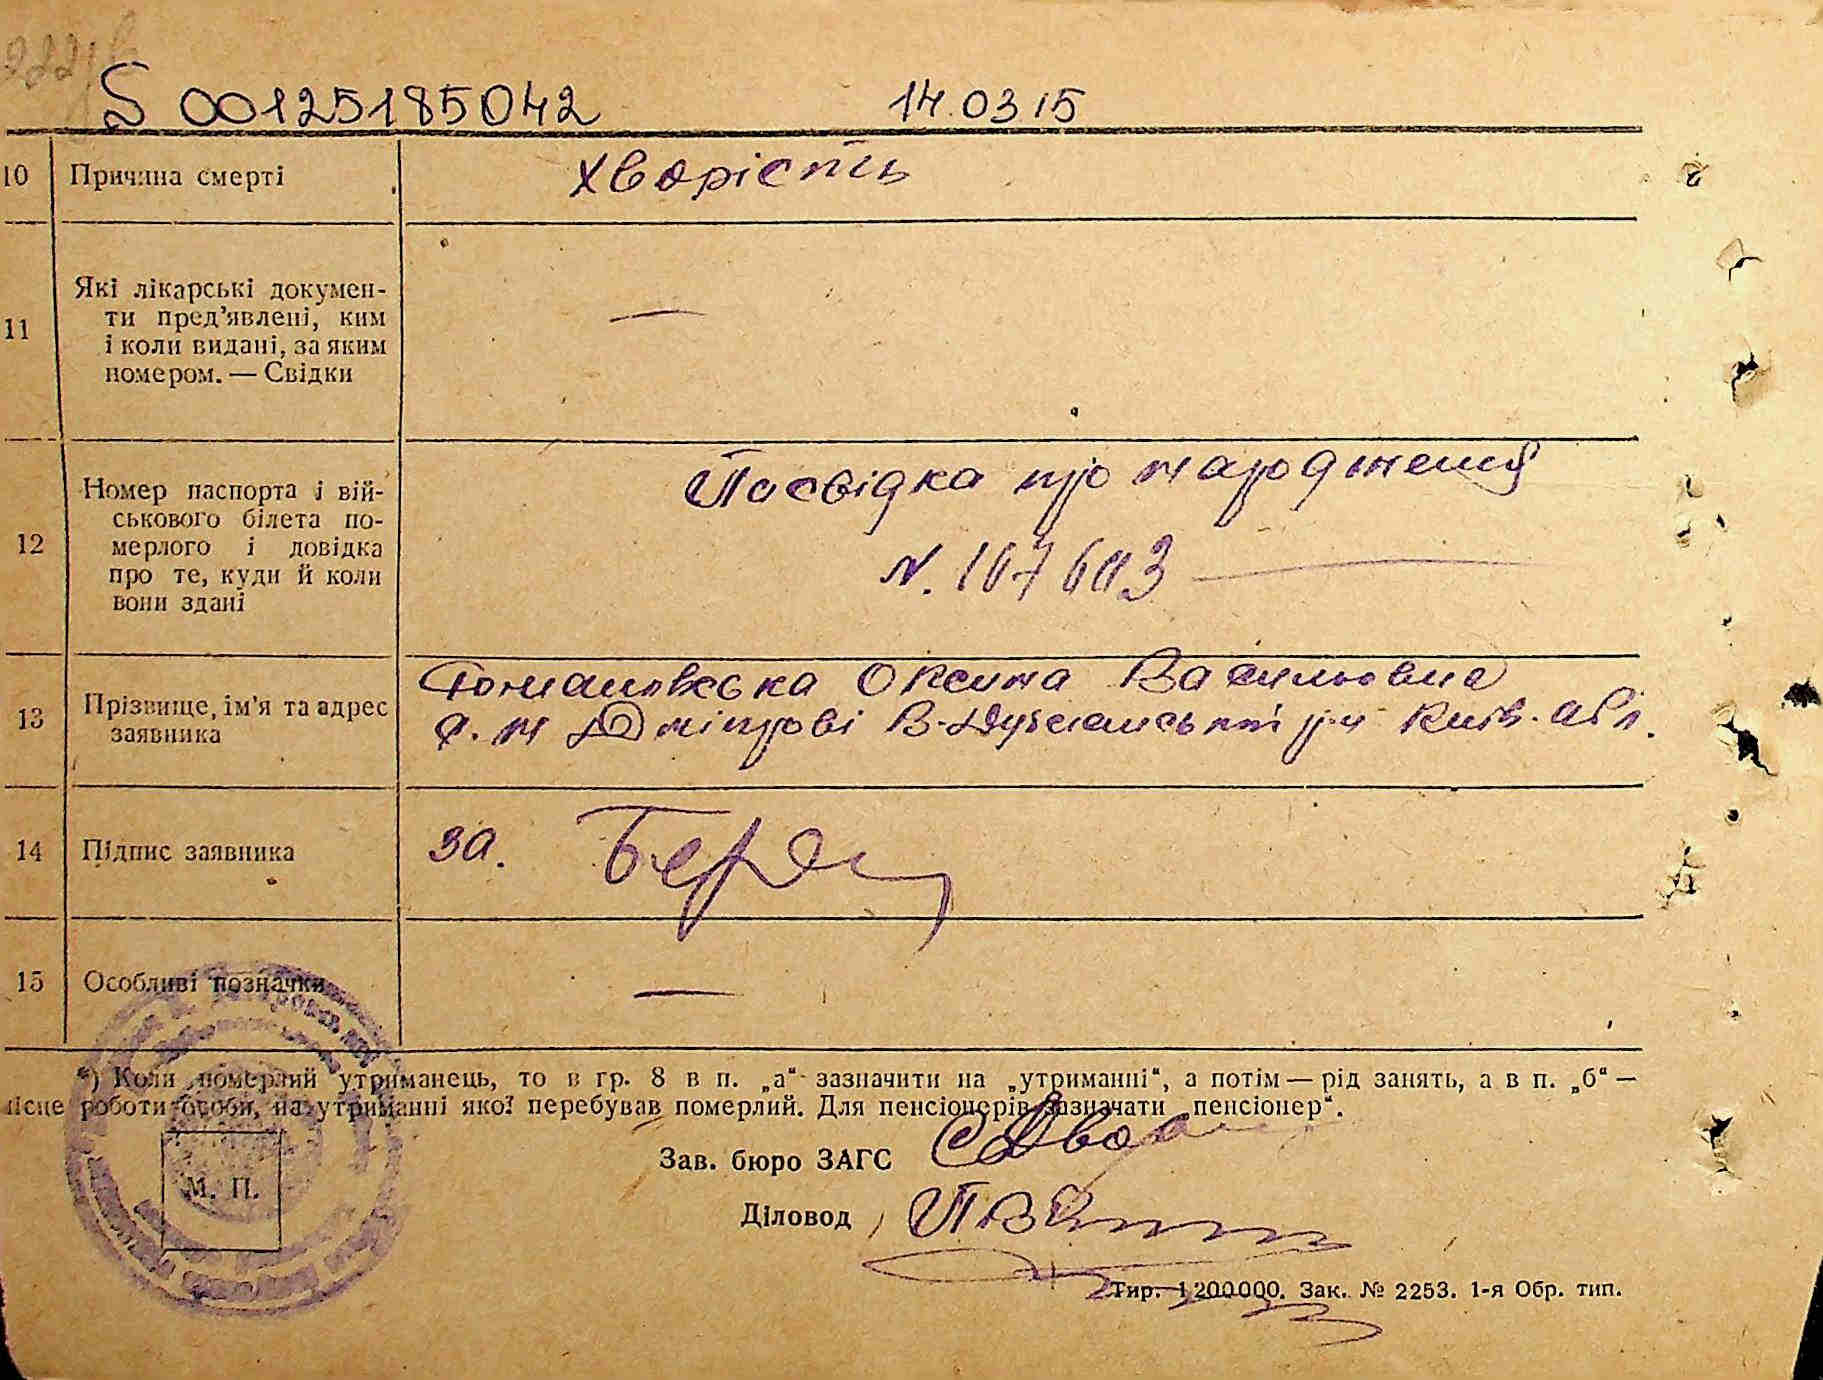 S 00125185042 14.03.15
10 Причина смерті
хворість
11 Які лікарські докумен-
ти пред’явлені, ким
і коли видані, за яким
номером. — Свідки
—
12 Номер паспорта і вій-
ськового білета по-
мерлого і довідка
про те, куди й коли
вони здані
Посвідка про народження
N. 107603 —
13 Прізвище, ім’я та адрес
заявника
Оксита Васильовна
с. м Дніпрові В-Дубечанський р-н Київ. обл.
14 Підпис заявника
за.
15 Особливі позначки
—
*) Коли померлий утриманець, то в гр. 8 в п. „а“ зазначити на „утриманні“, а потім — рід занять, а в п. „б“ —
місце роботи особи, на утриманні якої перебував померлий. Для пенсіонерів зазначати „пенсіонер“.
Зав. бюро ЗАГС
М. П.
Діловод
Тир. 1 200000. Зак. № 2253. 1-я Обр. тип.